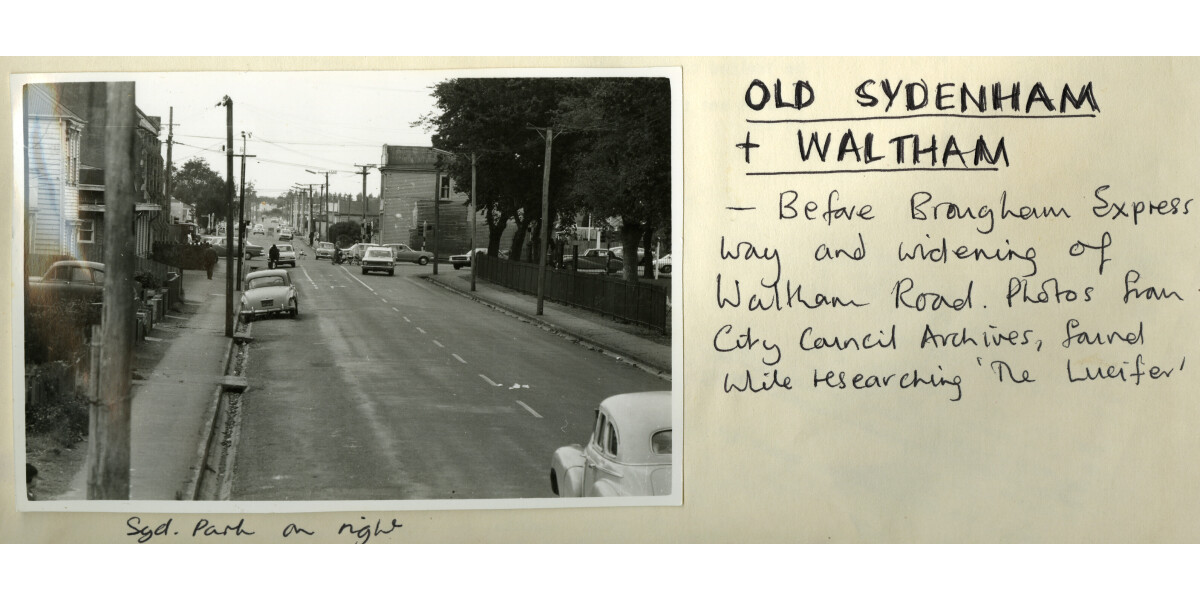 OLD SYDENHAM
+ WALTHAM
– Before Brougham Express
way and widening of
Waltham Road. Photos from
City Council Archives, found
while researching 'The Lucifer'
Syd. Park on right